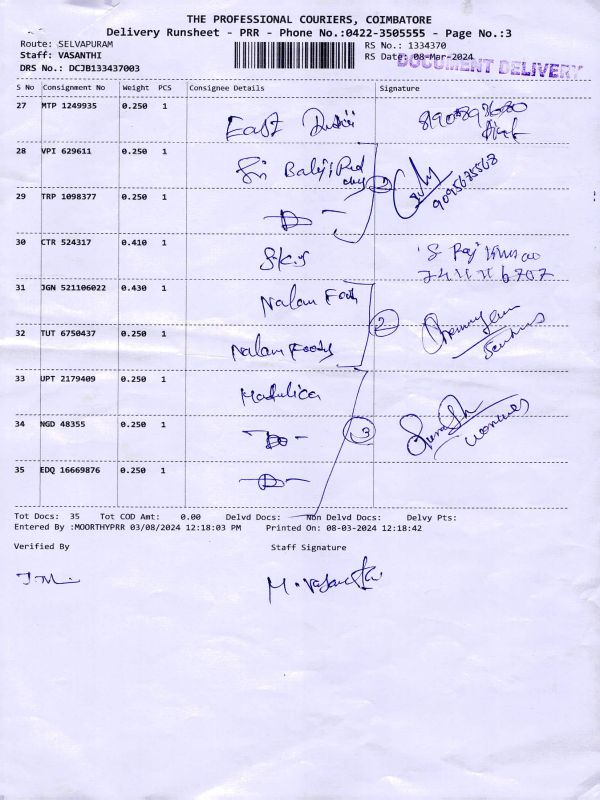 THE PROFESSIONAL COURIERS, COIMBATORE
Delivery Runsheet - PRR - Phone No.:0422-3505555 - Page No.:3
Route: SELVAPURAM RS No.: 1334370
Staff: VASANTHI RS Date: 08-Mar-2024
DOCUMENT DELIVERY
DRS No.: DCJB133437003
S No Consignment No Weight PCS Consignee Details Signature
27 MTP 1249935 0.250 1 East
28 VPI 629611 0.250 1 Sri Balaji Prd
2 9095675568
29 TRP 1098377 0.250 1 - Do -
30 CTR 524317 0.410 1 S.K.S S Raj Kumar
31 JGN 521106022 0.430 1 Nalam Foods
2
32 TUT 6750437 0.250 1 Nalam Foods
33 UPT 2179409 0.250 1 Madulica
34 NGD 48355 0.250 1 - Do - 3
35 EDQ 16669876 0.250 1 - Do -
Tot Docs: 35 Tot COD Amt: 0.00 Delvd Docs: Non Delvd Docs: Delvy Pts:
Entered By :MOORTHYPRR 03/08/2024 12:18:03 PM Printed On: 08-03-2024 12:18:42
Verified By Staff Signature
M. Vasanthi